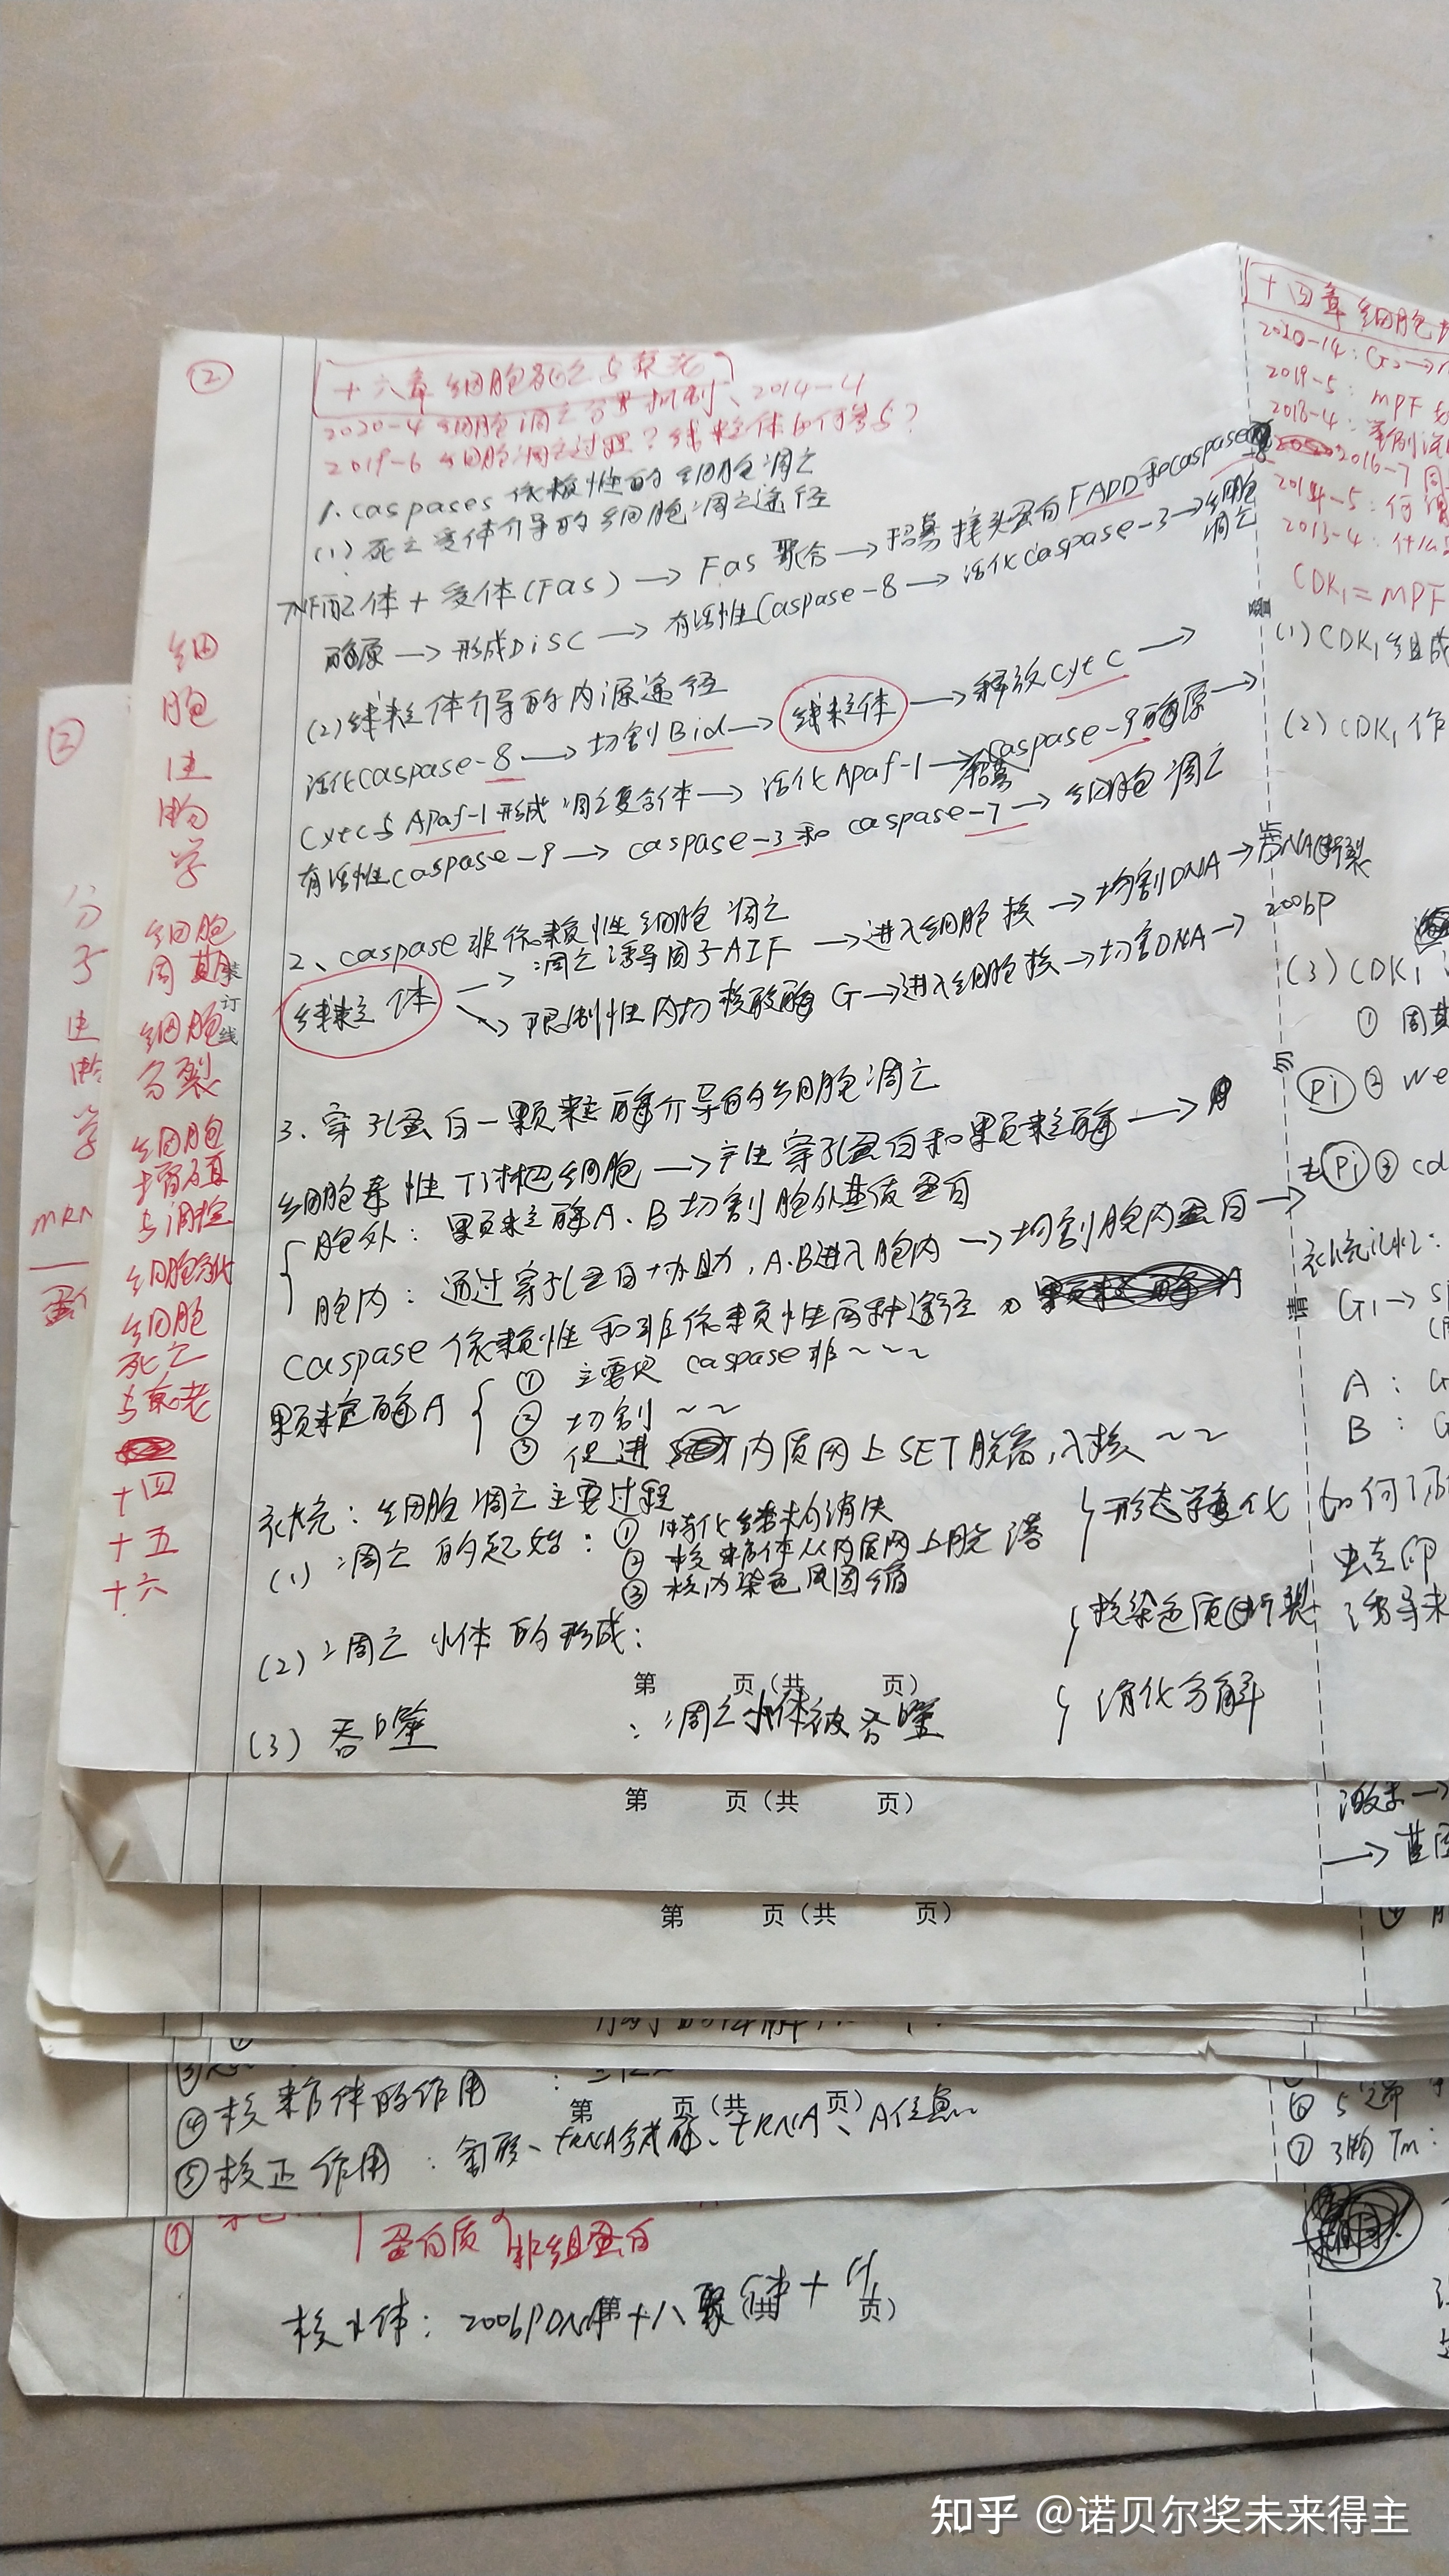 ②
十六章 细胞死亡与衰老
2020-4 细胞凋亡分子机制、2014-4
2019-6 细胞凋亡过程？线粒体如何参与？
1. caspases 依赖性的细胞凋亡
(1) 死亡受体介导的细胞凋亡途径
配体 + 受体(Fas) → Fas 聚合 → 招募接头蛋白FADD和caspase
酶原 → 形成DiSC → 有活性Caspase-8 → 活化caspase-3 → 细胞凋亡
(2) 线粒体介导的内源途径
活化caspase-8 → 切割Bid → 线粒体 → 释放cytC →
CytC与Apaf-1形成凋亡复合体 → 活化Apaf-1 → 招募caspase-9酶原 →
有活性caspase-9 → caspase-3和caspase-7 → 细胞凋亡
2、caspase非依赖性细胞凋亡
线粒体 → 凋亡诱导因子AIF → 进入细胞核 → 切割DNA → DNA断裂
→ 限制性内切核酸酶G → 进入细胞核 → 切割DNA → 200bp
3. 穿孔蛋白-颗粒酶介导的细胞凋亡
细胞毒性T对靶细胞 → 产生穿孔蛋白和颗粒酶 →
胞外：颗粒酶A、B切割胞外基质蛋白
胞内：通过穿孔蛋白协助，A.B进入胞内 → 切割胞内蛋白 →
caspase依赖性和非依赖性两种途径
颗粒酶A ① 主要是caspase非~~~
② 切割~~
③ 促进内质网上SET脱离，入核~~
补充：细胞凋亡主要过程
(1) 凋亡的起始：① 特化结构消失
② 核糖体从内质网上脱落
③ 核内染色质固缩
形态学变化
(2) 凋亡小体的形成：
核染色质断裂
(3) 吞噬：凋亡小体被吞噬
消化分解
第 页（共 页）
细胞生物学
细胞周期
细胞分裂
细胞增殖与调控
细胞死亡与衰老
十四
十五
十六
装订线
②
分子生物学
十四章 细胞
2020-14：G2→
2019-5：MPF
2018-4：举例说
2016-7 周
2014-5：何谓
2013-4：什么
CDK1=MPF
(1) CDK1组成
(2) CDK1作
(3) CDK1
① 周期
Pi ② we
去Pi ③ cd
G1→
A：G
B：G
如何
诱导
勿
请
第 页（共 页）
→
第 页（共 页）
④核糖体的作用
第 页（共 页）
⑤校正作用：氨酰、tRNA合成酶、tRNA、
⑥
⑦ 引物Tm：
①
蛋白质 非组蛋白
核小体：200bpDNA+八聚体+H
第 （共 页）
知乎 @诺贝尔奖未来得主